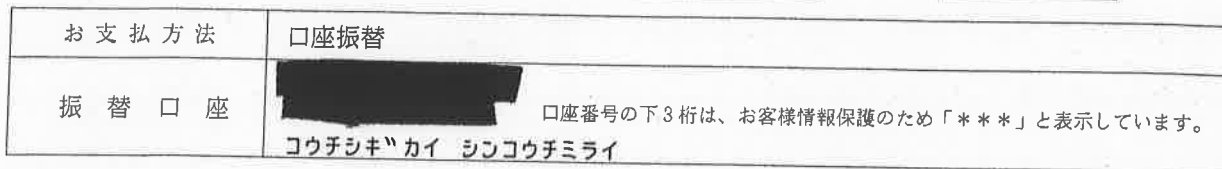 お支払方法 口座振替
振替口座
口座番号の下3桁は、お客様情報保護のため「＊＊＊」と表示しています。
コウチシギカイ シンコウチミライ